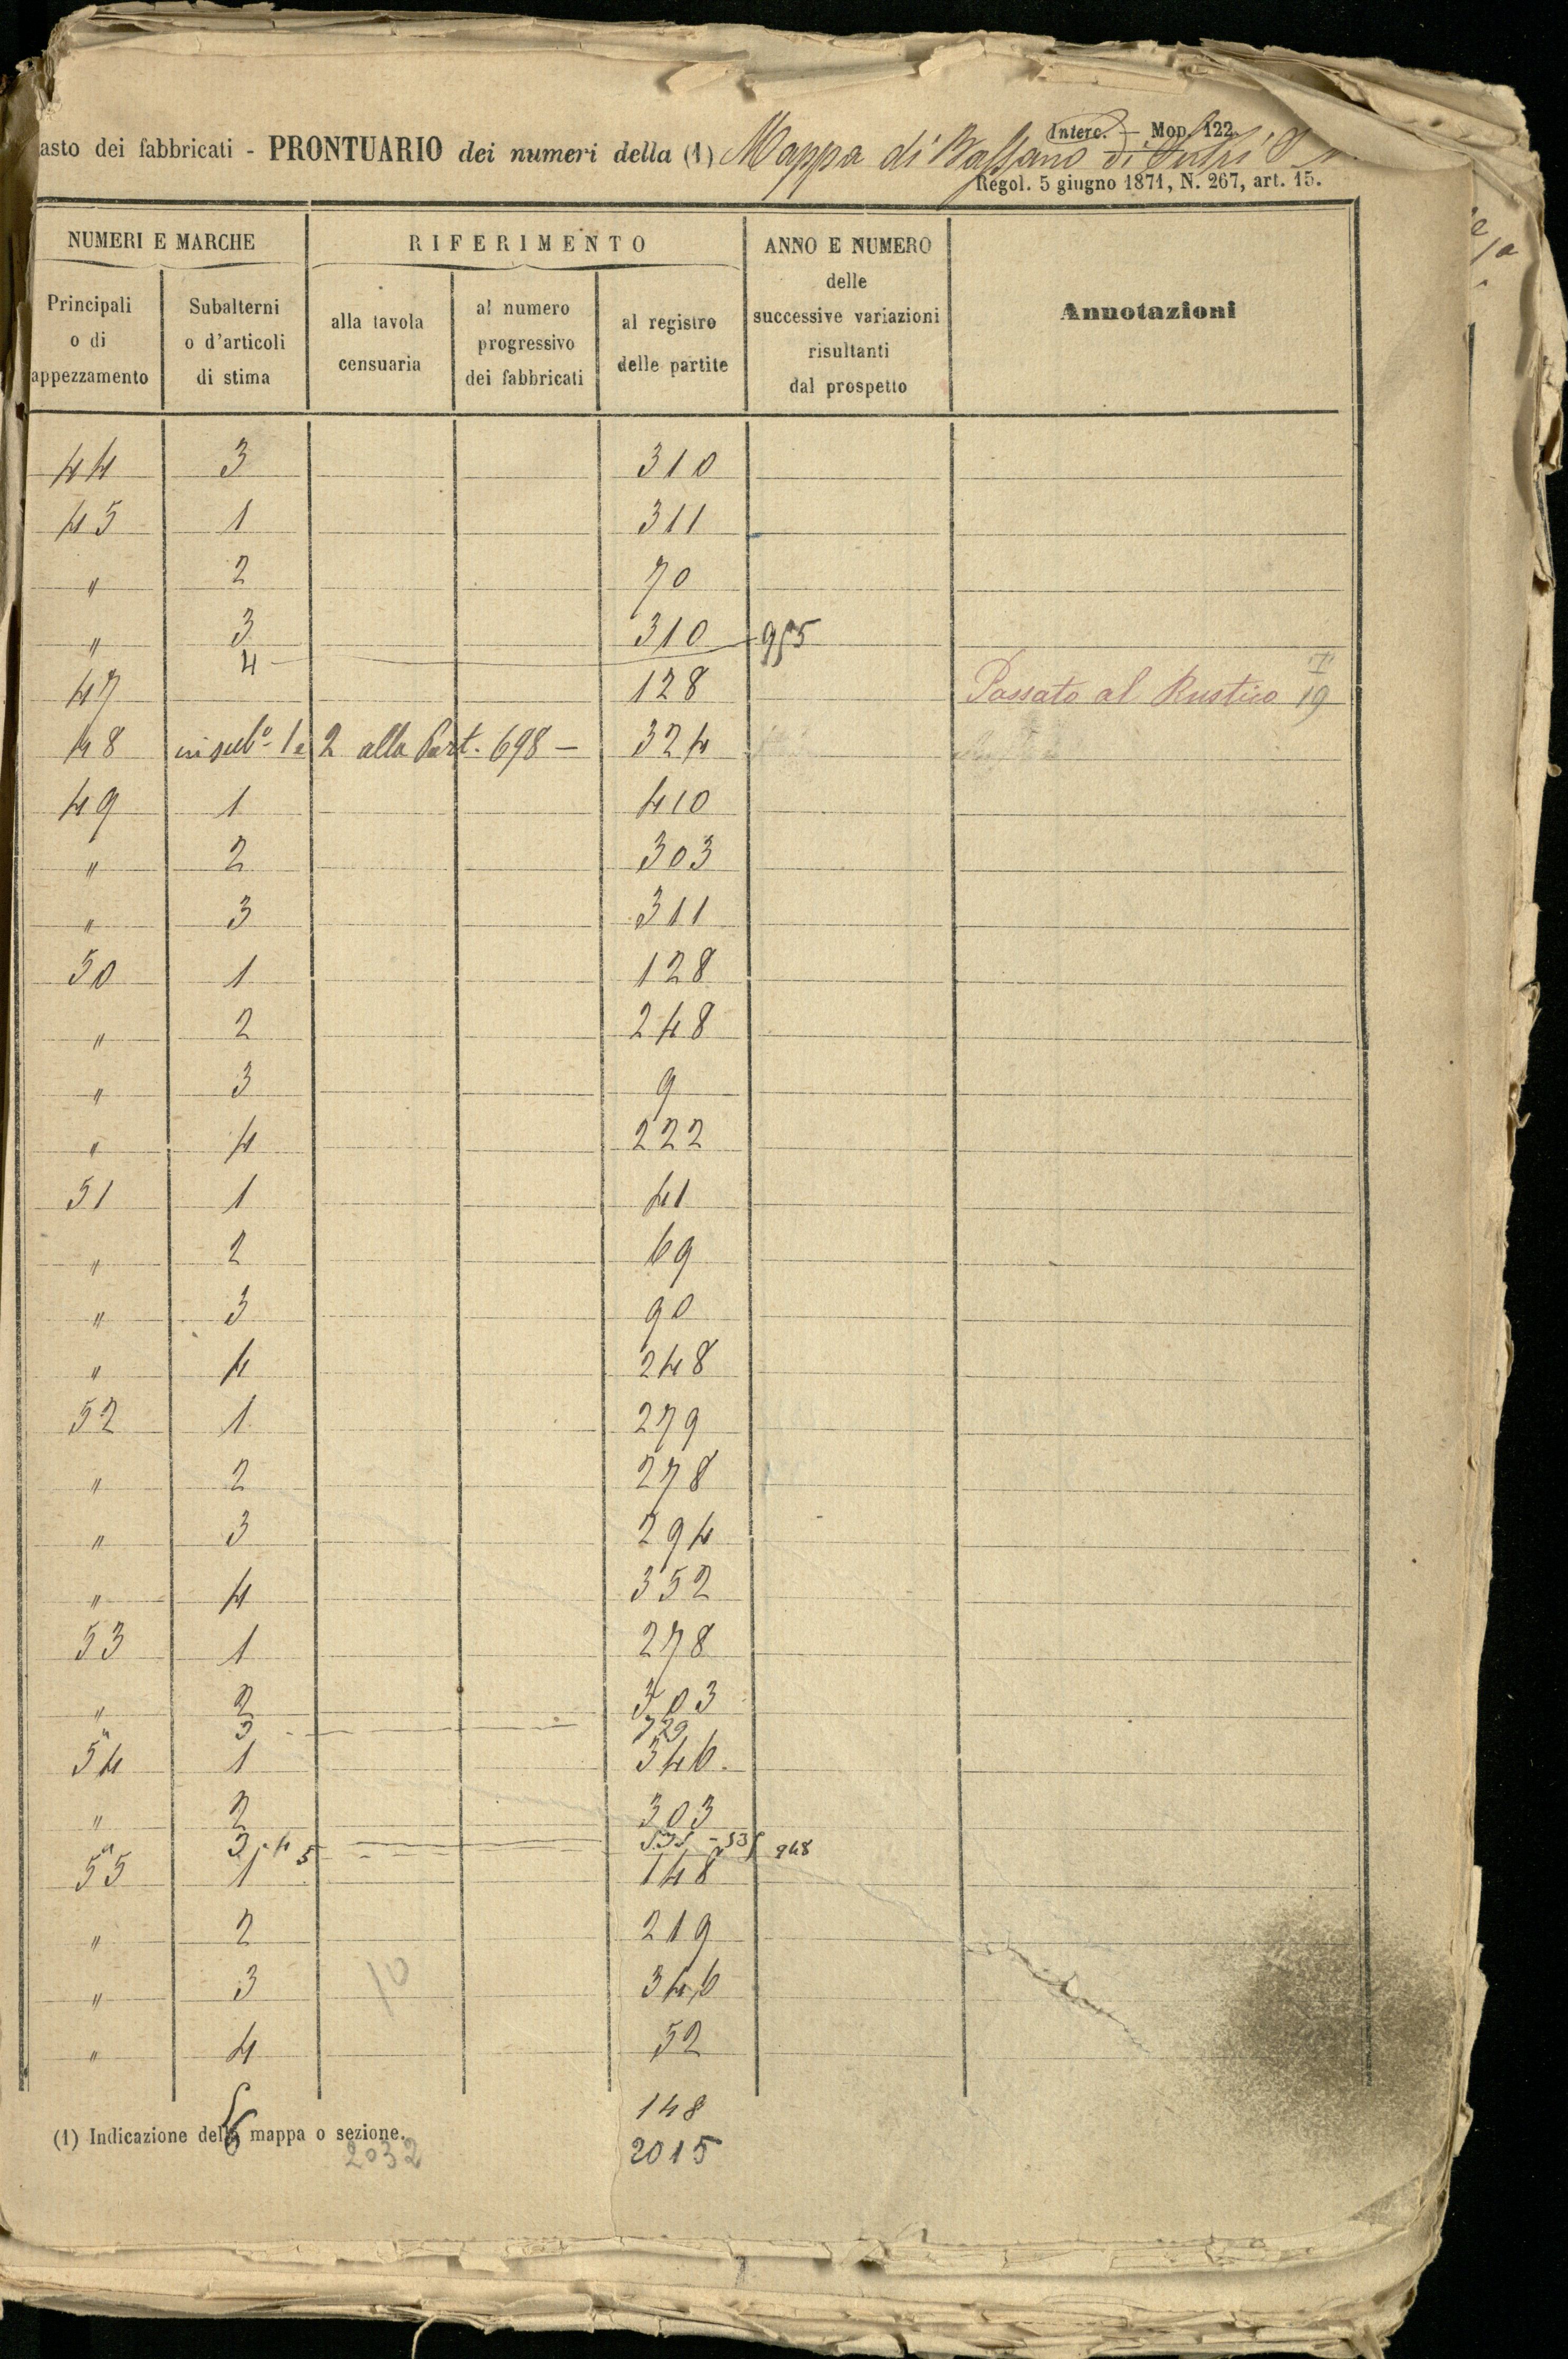 Interc. — Mop. 122
asto dei fabbricati - PRONTUARIO dei numeri della (1) Mappa di Bassano di Sutri
Regol. 5 giugno 1871, N. 267, art. 15.
NUMERI E MARCHE RIFERIMENTO ANNO E NUMERO delle successive variazioni risultanti dal prospetto Annotazioni
Principali o di appezzamento Subalterni o d'articoli di stima alla tavola censuaria al numero progressivo dei fabbricati al registro delle partite
44 3 310
45 1 311
" 2 70
" 3 310 955
4
47 128 Passato al Rustico I 19
48 in sub.º 1 e 2 alla Part. 698 — 324
49 1 410
" 2 303
" 3 311
50 1 128
" 2 248
" 3 9
" 4 222
51 1 41
" 2 69
" 3 90
" 4 248
52 1 279
" 2 278
" 3 294
" 4 352
53 1 278
" 2 303
" 3 729
54 1 346
" 2 303
" 3 4 5 535 - 535 948
55 1 148
" 2 219
" 3 10 346
" 4 52
5 148
(1) Indicazione della mappa o sezione.
6 2032 2015